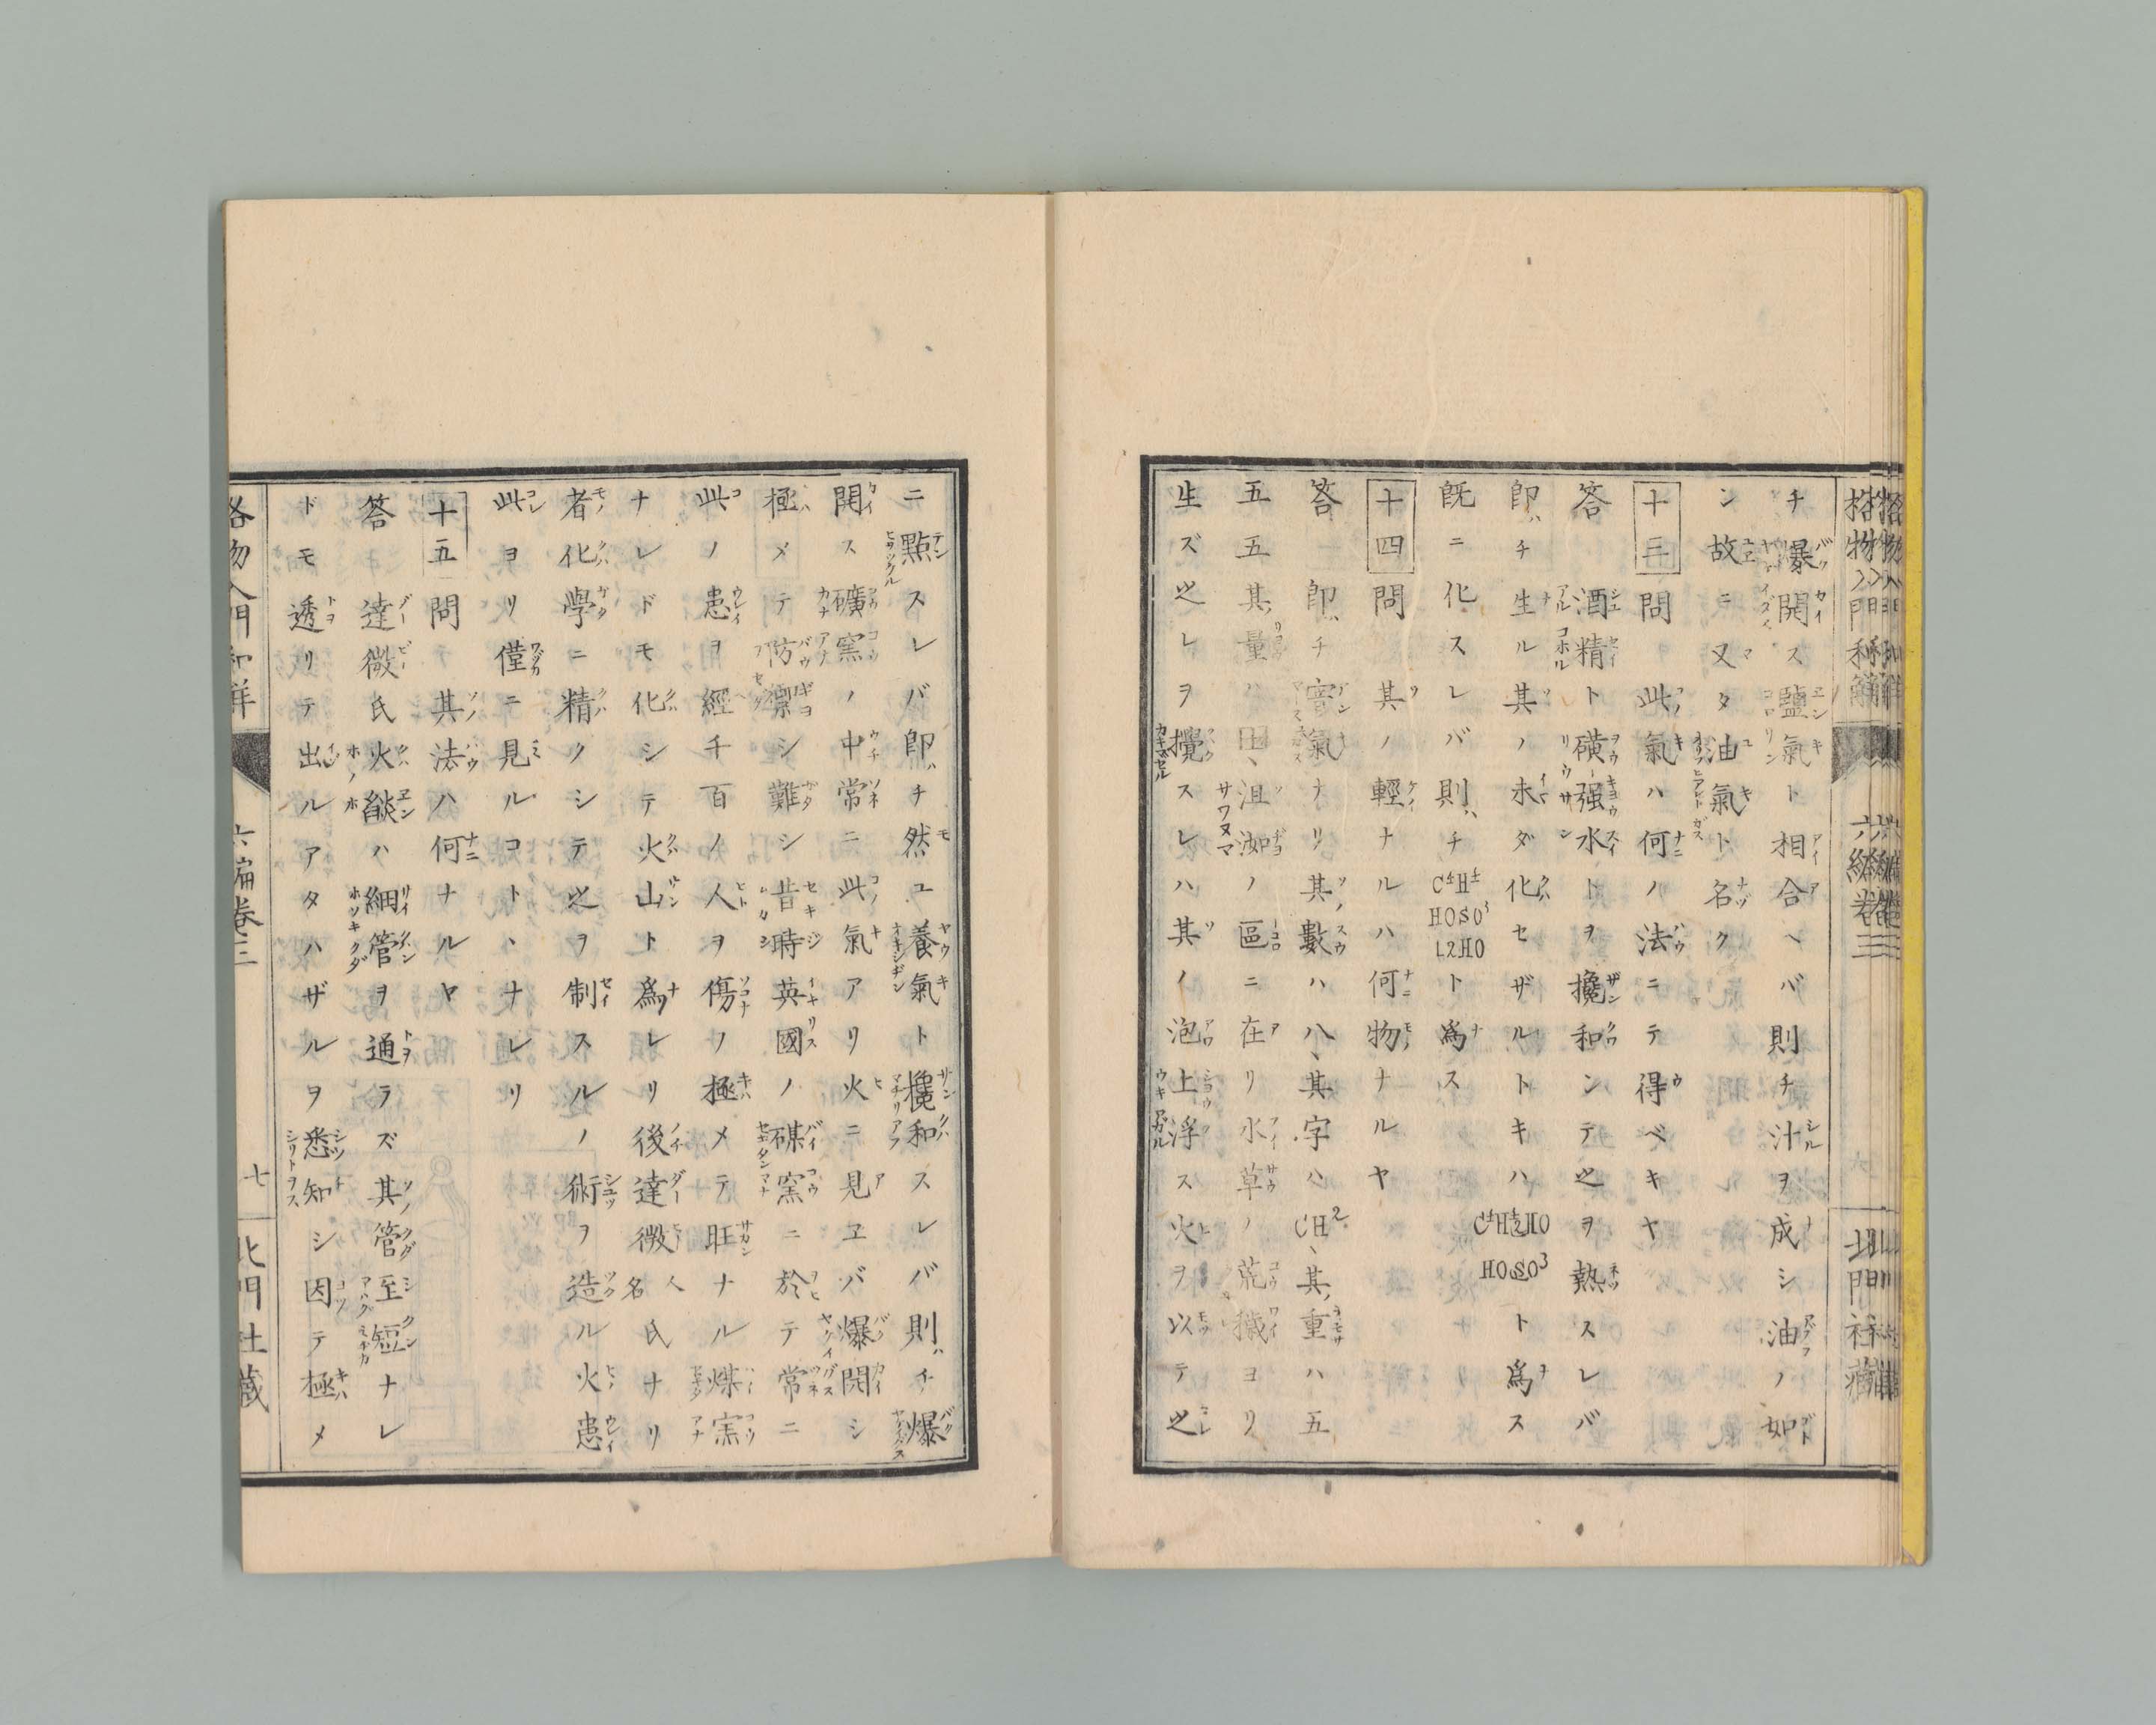 格物入門和解 六編卷三 六 北門社藏
チ爆開ス鹽氣ト相合ヘバ則チ汁ヲ成シ油ノ如
ン故ニ又タ油氣ト名ク
十三問 此氣ハ何ノ法ニテ得ベキヤ
答 酒精ト磺强水トヲ攙和ンテ之ヲ熱スレバ
即チ生ル其ノ未ダ化セザルトキハ C4H4 2HO HOSO3 ト爲ス
既ニ化スレバ則チ C4H4 HOSO3 L2HO ト爲ス
十四問 其ノ輕ナルハ何物ナルヤ
答 即チ窨氣ナリ其數ハ八、其字ハ CH2、其重ハ五
五五其量ハ 沮洳ノ區ニ在リ水草ノ荒穢ヨリ
生ズ之レヲ攪スレハ其ノ泡上浮ス火ヲ以テ之
ニ點スレバ即チ然ユ養氣ト攙和スレバ則チ爆
開ス礦窯ノ中常ニ此氣アリ火ニ見ヱバ爆開シ
極メテ防禦シ難シ昔時英國ノ煤窯ニ於テ常ニ
此ノ患ヲ經千百ノ人ヲ傷フ極メテ旺ナル煤窯
ナレドモ化シテ火山ト爲レリ後達微人名氏ナリ
者化學ニ精クシテ之ヲ制スルノ術ヲ造ル火患
此ヨリ僅ニ見ルコトヽナレリ
十五問 其法ハ何ナルヤ
答 達微氏火燄ハ細管ヲ通ラズ其管至短ナレ
ドモ透リテ出ルアタハザルヲ悉知シ因テ極メ
格物入門和解 六編卷三 七 北門社藏